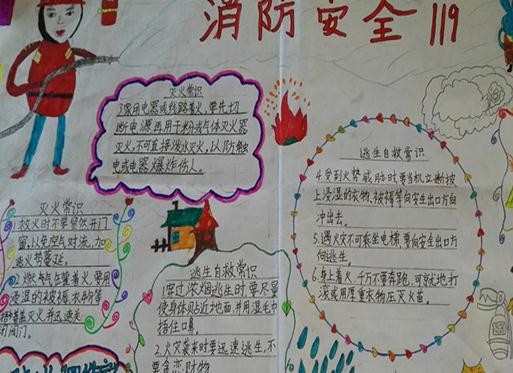 消防安全 119
灭火常识
3.家用电器或线路着火,要先切
断电源,再用干粉或气体灭火器
灭火,不可直接泼水灭火,以防触
电或电器爆炸伤人。
灭火常识
1.救火时不要贸然开门
窗,以免空气对流,加
速火势蔓延。
2.燃气气罐着火,要用
浸湿的被褥、衣物等
捂盖灭火,并迅速关
闭阀门。
逃生自救常识
1.穿过浓烟逃生时,要尽量
使身体贴近地面,并用湿毛巾
捂住口鼻。
2.火灾袭来时要迅速逃生,不
要贪恋财物
逃生自救常识
4.受到火势威胁时,要当机立断披
上浸湿的衣物、被褥等向安全出口方向
冲出去。
5.遇火灾不可乘坐电梯,要向安全出口方
向逃生。
6.身上着火,千万不要奔跑,可就地打
滚或用厚重衣物压灭火苗。